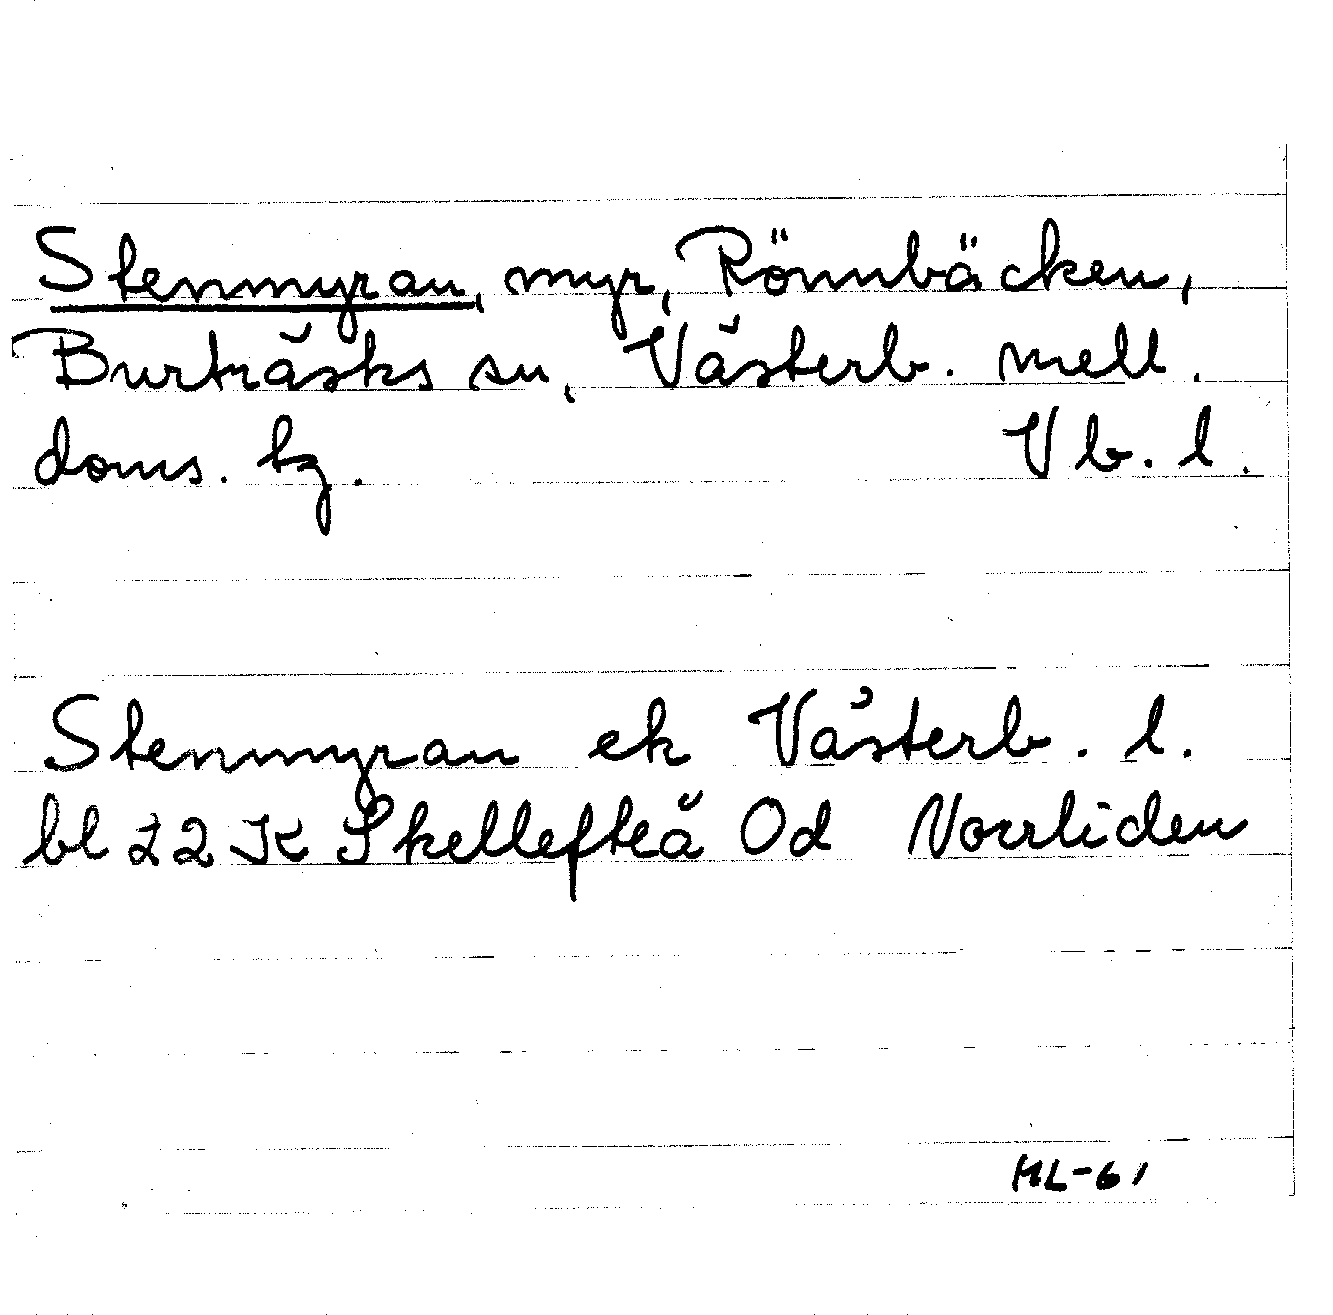 Stenmyran, myr, Rönnbäcken,
Burträsks sn, Västerb. mell.
doms. hz. Vb. l.
Stenmyran ek Västerb. l.
bl 22 K Skellefteå Od Norrliden
HL-61